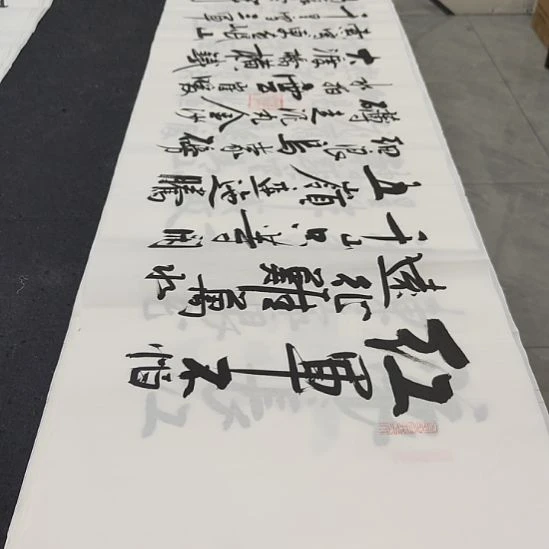 红軍不怕
遠征難萬水
千山只等闲
五嶺逶迤騰
细浪烏蒙磅
礴走泥丸金沙
水拍雲崖暖
大渡橋横鐵
索寒更喜岷山
千里雪三軍